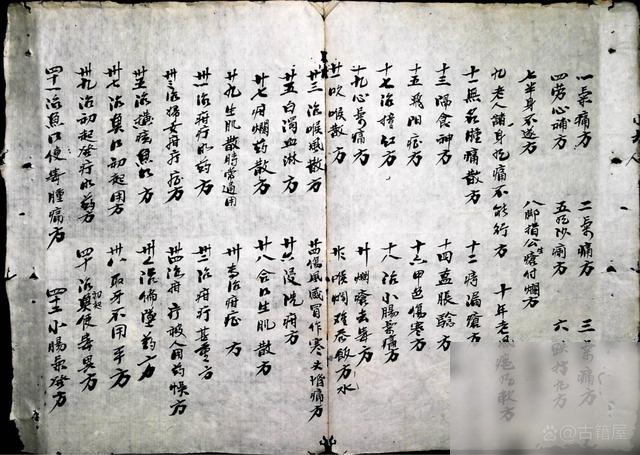 一氣痛方 二氣痛方 三氣痛方
四勞心補方 五 痢方 六 方
七半身不遂方 八脚指公瘡付爛方
九老人 身 痛不能行方 十年老 方
十一無名腫痛散方 十二痔漏瘡方
十三隔食神方 十四蠱脹騐方
十五 陽症方 十六甲 傷寒方
十七治撞紅方 十八治小腸氣 方
十九心氣痛方 廿爛瘡去毒方
廿一吹喉散方 喉 难吞飲方水
廿三治喉風散方 廿四傷風感冒作寒去頭痛方
廿五白濁血淋方 廿六浸洗疳方
廿七疳爛药散方 廿八合口生肌散方
廿九生肌散時常通用 卅 治疳症方
卅一治疳疔的药方 卅二治疳疔甚重方
卅三治婦女疳疔症方 卅四治疳疔被人用药悮方
卅五治横痃魚口方 卅六治偏墜药方
卅七治魚口初起用方 卅八取牙不用手方
卅九治初起發疔的药方 四十治魚口初起便毒異方
四十一治魚口便毒腫痛方 四十二小腸氣發方
古籍屋